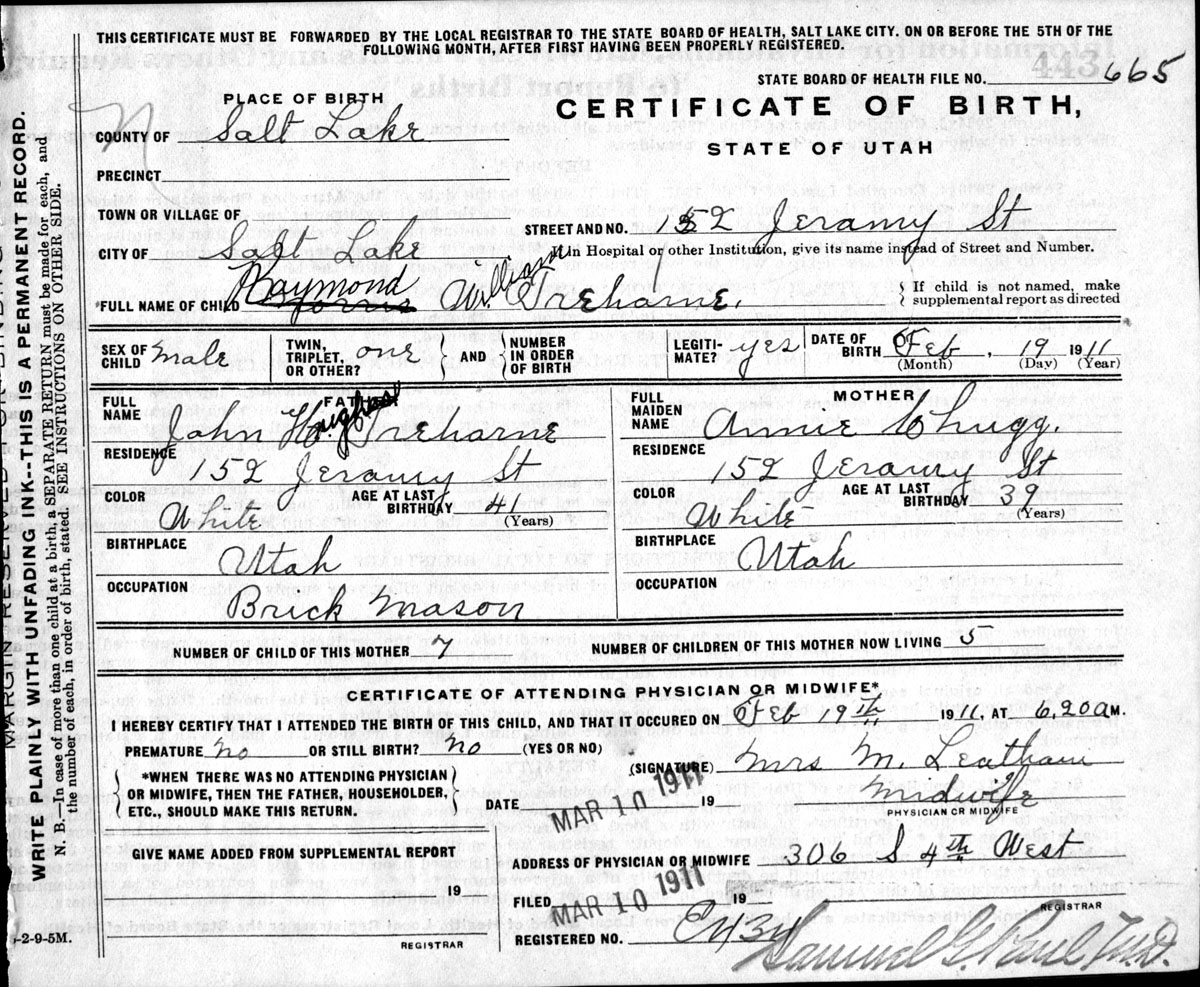 THIS CERTIFICATE MUST BE FORWARDED BY THE LOCAL REGISTRAR TO THE STATE BOARD OF HEALTH, SALT LAKE CITY. ON OR BEFORE THE 5TH OF THE
FOLLOWING MONTH, AFTER FIRST HAVING BEEN PROPERLY REGISTERED.
STATE BOARD OF HEALTH FILE NO. 665
443
PLACE OF BIRTH
CERTIFICATE OF BIRTH,
STATE OF UTAH
COUNTY OF Salt Lake
PRECINCT
TOWN OR VILLAGE OF
STREET AND NO. 152 Jeramy St
CITY OF Salt Lake
If in Hospital or other Institution, give its name instead of Street and Number.
*FULL NAME OF CHILD Raymond William Treharne.
If child is not named, make
supplemental report as directed
SEX OF CHILD male
TWIN, TRIPLET, OR OTHER? one
AND
NUMBER IN ORDER OF BIRTH
LEGITIMATE? yes
DATE OF BIRTH Feb, 19 1911
(Month) (Day) (Year)
FATHER
FULL NAME
John Hughes Treharne
RESIDENCE
152 Jeramy St
COLOR
White
AGE AT LAST BIRTHDAY 41
(Years)
BIRTHPLACE
Utah
OCCUPATION
Brick Mason
MOTHER
FULL MAIDEN NAME
Annie Chugg.
RESIDENCE
152 Jeramy St
COLOR
White
AGE AT LAST BIRTHDAY 39
(Years)
BIRTHPLACE
Utah
OCCUPATION
NUMBER OF CHILD OF THIS MOTHER 7
NUMBER OF CHILDREN OF THIS MOTHER NOW LIVING 5
CERTIFICATE OF ATTENDING PHYSICIAN OR MIDWIFE*
I HEREBY CERTIFY THAT I ATTENDED THE BIRTH OF THIS CHILD, AND THAT IT OCCURED ON Feb 19th 1911, AT 6,20 a M.
PREMATURE no OR STILL BIRTH? no (YES OR NO)
(SIGNATURE) Mrs M. Leatham
*WHEN THERE WAS NO ATTENDING PHYSICIAN
OR MIDWIFE, THEN THE FATHER, HOUSEHOLDER,
ETC., SHOULD MAKE THIS RETURN.
DATE MAR 10 1911 19
Midwife
PHYSICIAN OR MIDWIFE
GIVE NAME ADDED FROM SUPPLEMENTAL REPORT
19
REGISTRAR
ADDRESS OF PHYSICIAN OR MIDWIFE 306 S 4th West
FILED MAR 10 1911 19
REGISTRAR
REGISTERED NO.
Samuel G. Paul M.D.
-2-9-5M.
WRITE PLAINLY WITH UNFADING INK--THIS IS A PERMANENT RECORD.
N. B.—In case of more than one child at a birth, a SEPARATE RETURN must be made for each, and
the number of each, in order of birth, stated. SEE INSTRUCTIONS ON OTHER SIDE.